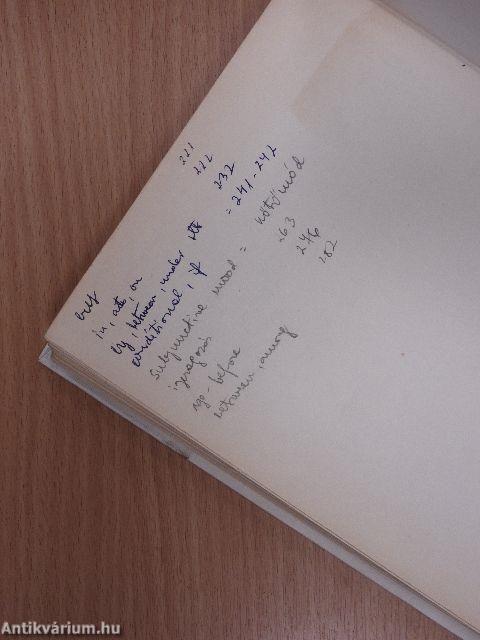 in, at, on 221
by, between, under 222
232
conditional, if = 241-242
subjunctive mood = kötőmód
igeragozás 263
ago - before 276
between, among 282
Antikvárium.hu